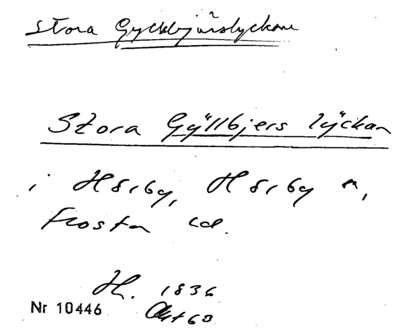 Stora Gyllbjärslyckan
Stora Gyllbjers lyckan
i Hörby, Hörby sn,
Frosta hd.
H. 1836
Akt 60
Nr 10446